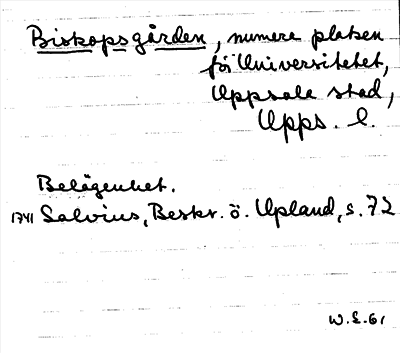 Biskopsgården, numera platsen
för Universitetet,
Uppsala stad,
Upps. l.
Belägenhet.
1741 Salvius, Beskr. ö. Upland, s. 72
W.L.61